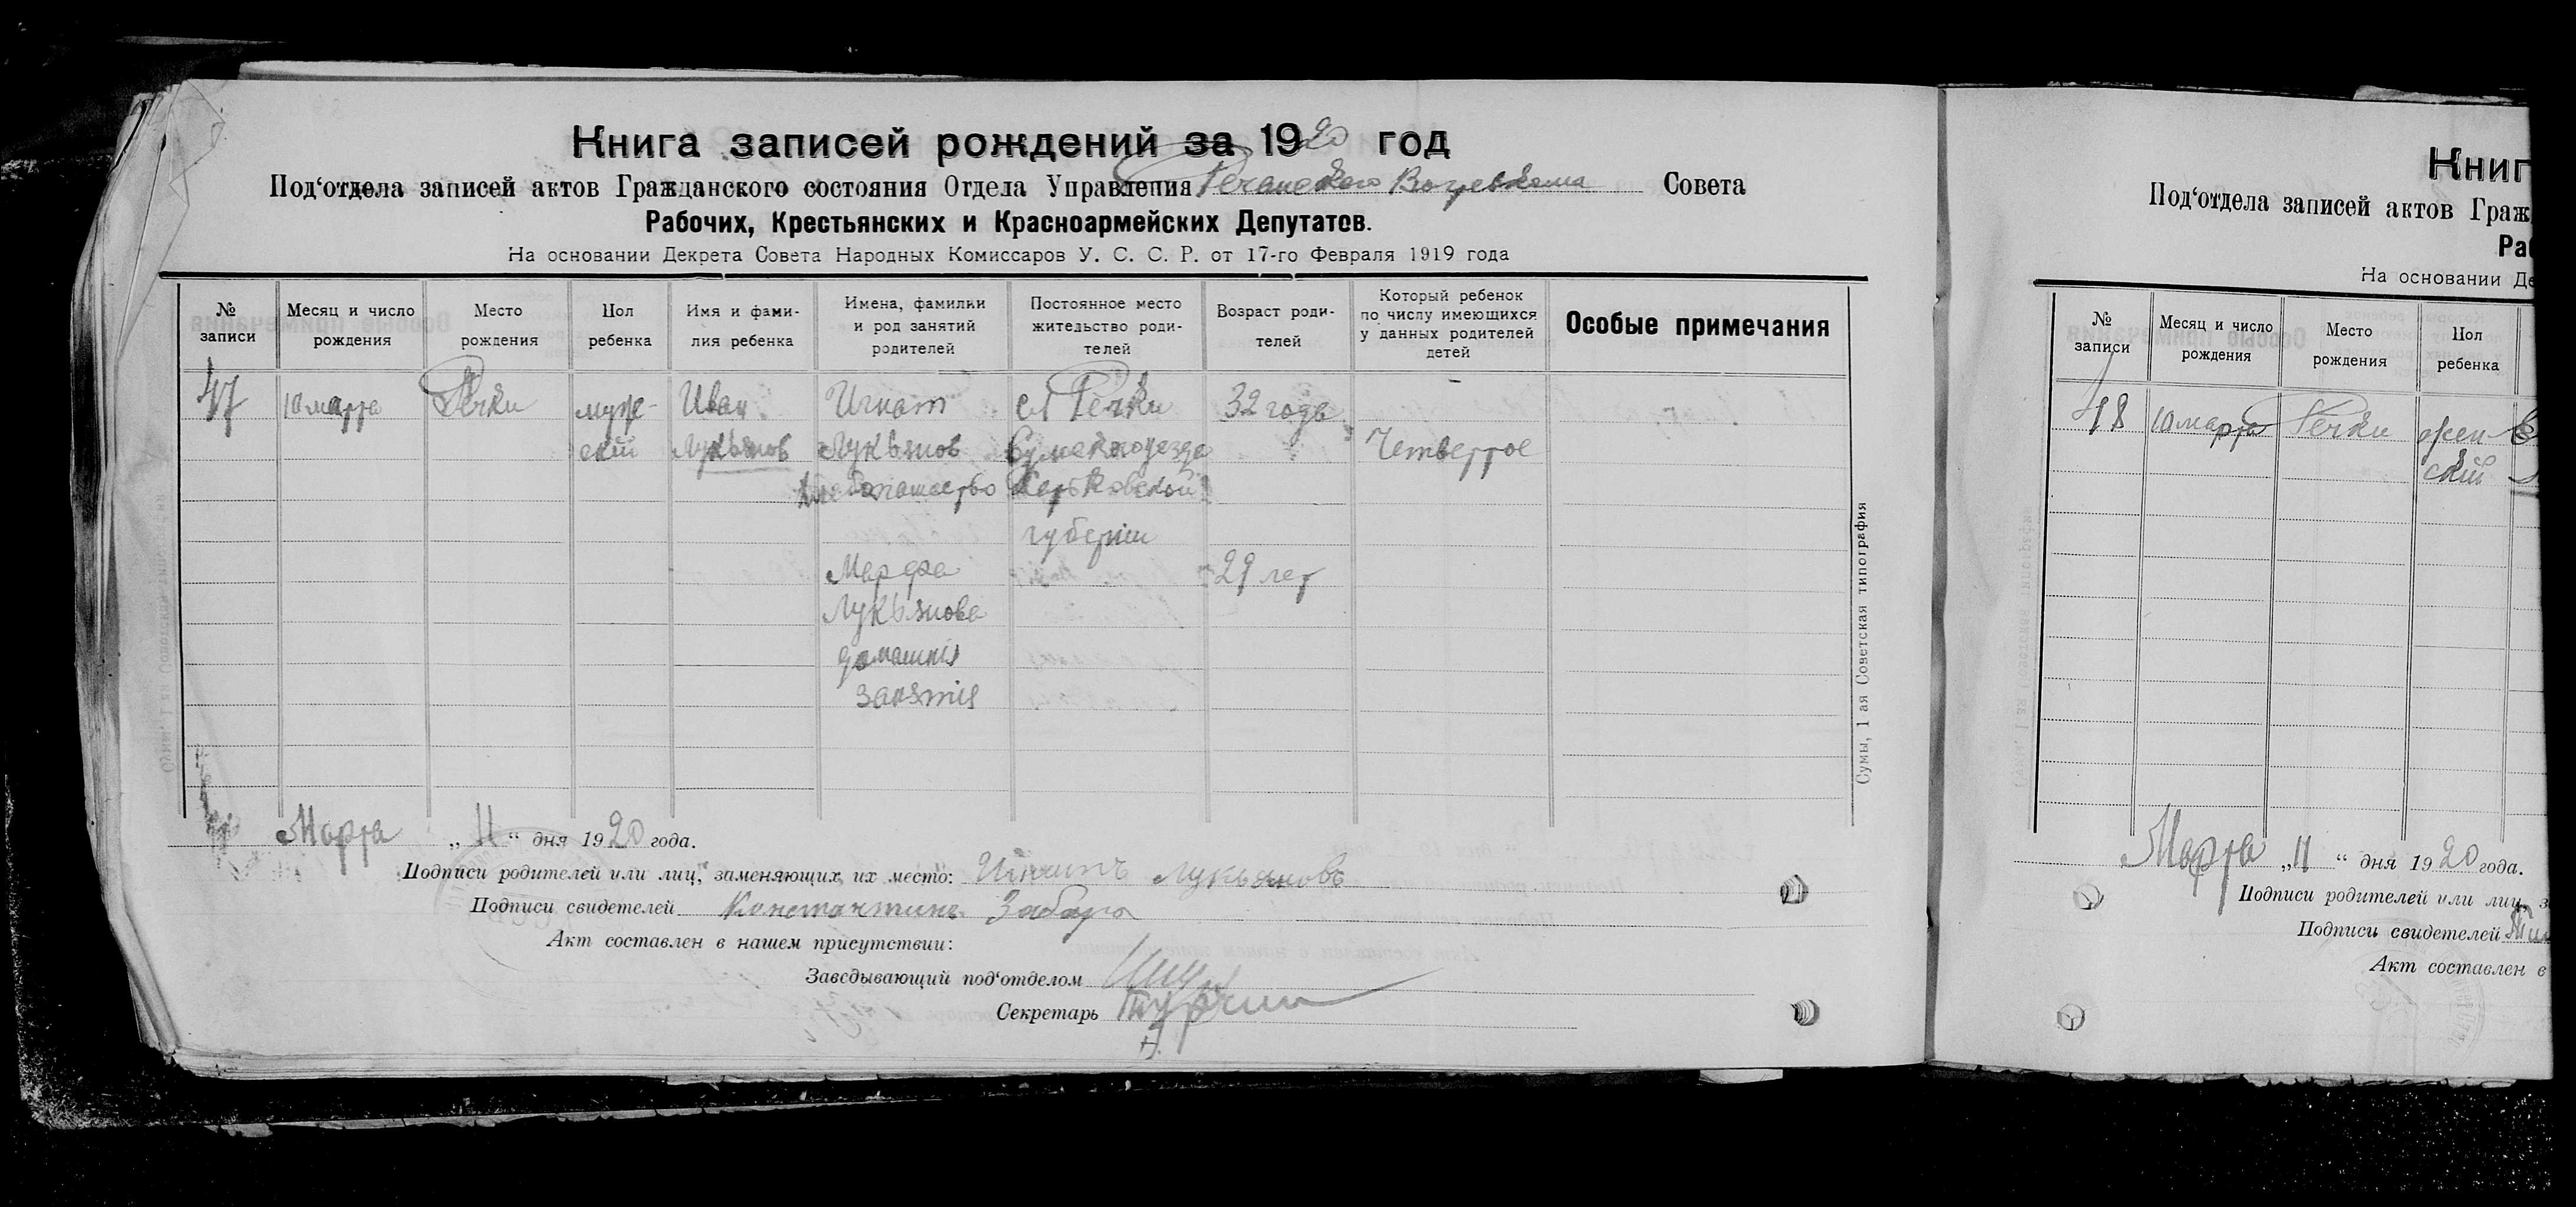 Книга записей рождений за 1920 год
Под‘отдела записей актов Гражданского состояния Отдела Управления Речанского Волревкома Совета
Рабочих, Крестьянских и Красноармейских Депутатов.
На основании Декрета Совета Народных Комиссаров У. С. С. Р. от 17-го Февраля 1919 года
№ записи
Месяц и число рождения
Место рождения
Пол ребенка
Имя и фами-
лия ребенка
Имена, фамилии
и род занятий
родителей
Постоянное место
жительство роди-
телей
Возраст роди-
телей
Который ребенок
по числу имеющихся
у данных родителей
детей
Особые примечания
47
10 марта
Речки
муж-
ской
Иван
Лукьянов
Игнат
Лукьянов
хлебопашество
Марфа
Лукьянова
домашнія
занятія
сл Речки
Сумского уезда
Харьковской
губерніи
32 года
29 лет
Четвертое
Сумы, 1 ая Советская типография
Марта „11“ дня 1920 года.
Подписи родителей или лиц, заменяющих их место: Игнатъ Лукьяновъ
Подписи свидетелей Константинъ Забара
Акт составлен в нашем присутствии:
Заведывающий под‘отделом
Секретарь
Книг
Под‘отдела записей актов Граж
Ра
На основании Де
№ записи
Месяц и число рождения
Место рождения
Пол ребенка
48
10 марта
Речки
жен-
ский
Марта „11“ дня 1920 года.
Подписи родителей или лиц, з
Подписи свидетелей
Акт составлен в